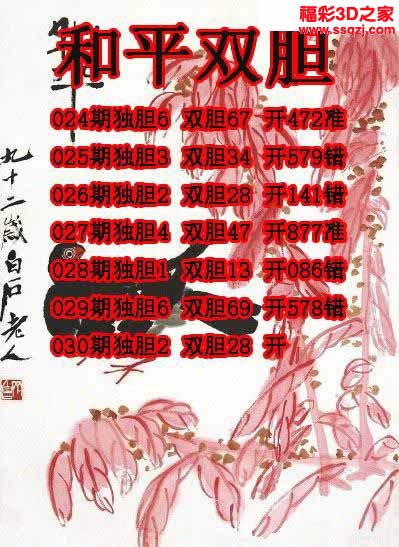 福彩3D之家
www.ssqzj.com
和平双胆
024期独胆6 双胆67 开472准
025期独胆3 双胆34 开579错
026期独胆2 双胆28 开141错
027期独胆4 双胆47 开877准
028期独胆1 双胆13 开086错
029期独胆6 双胆69 开578错
030期独胆2 双胆28 开
九十二岁白石老人